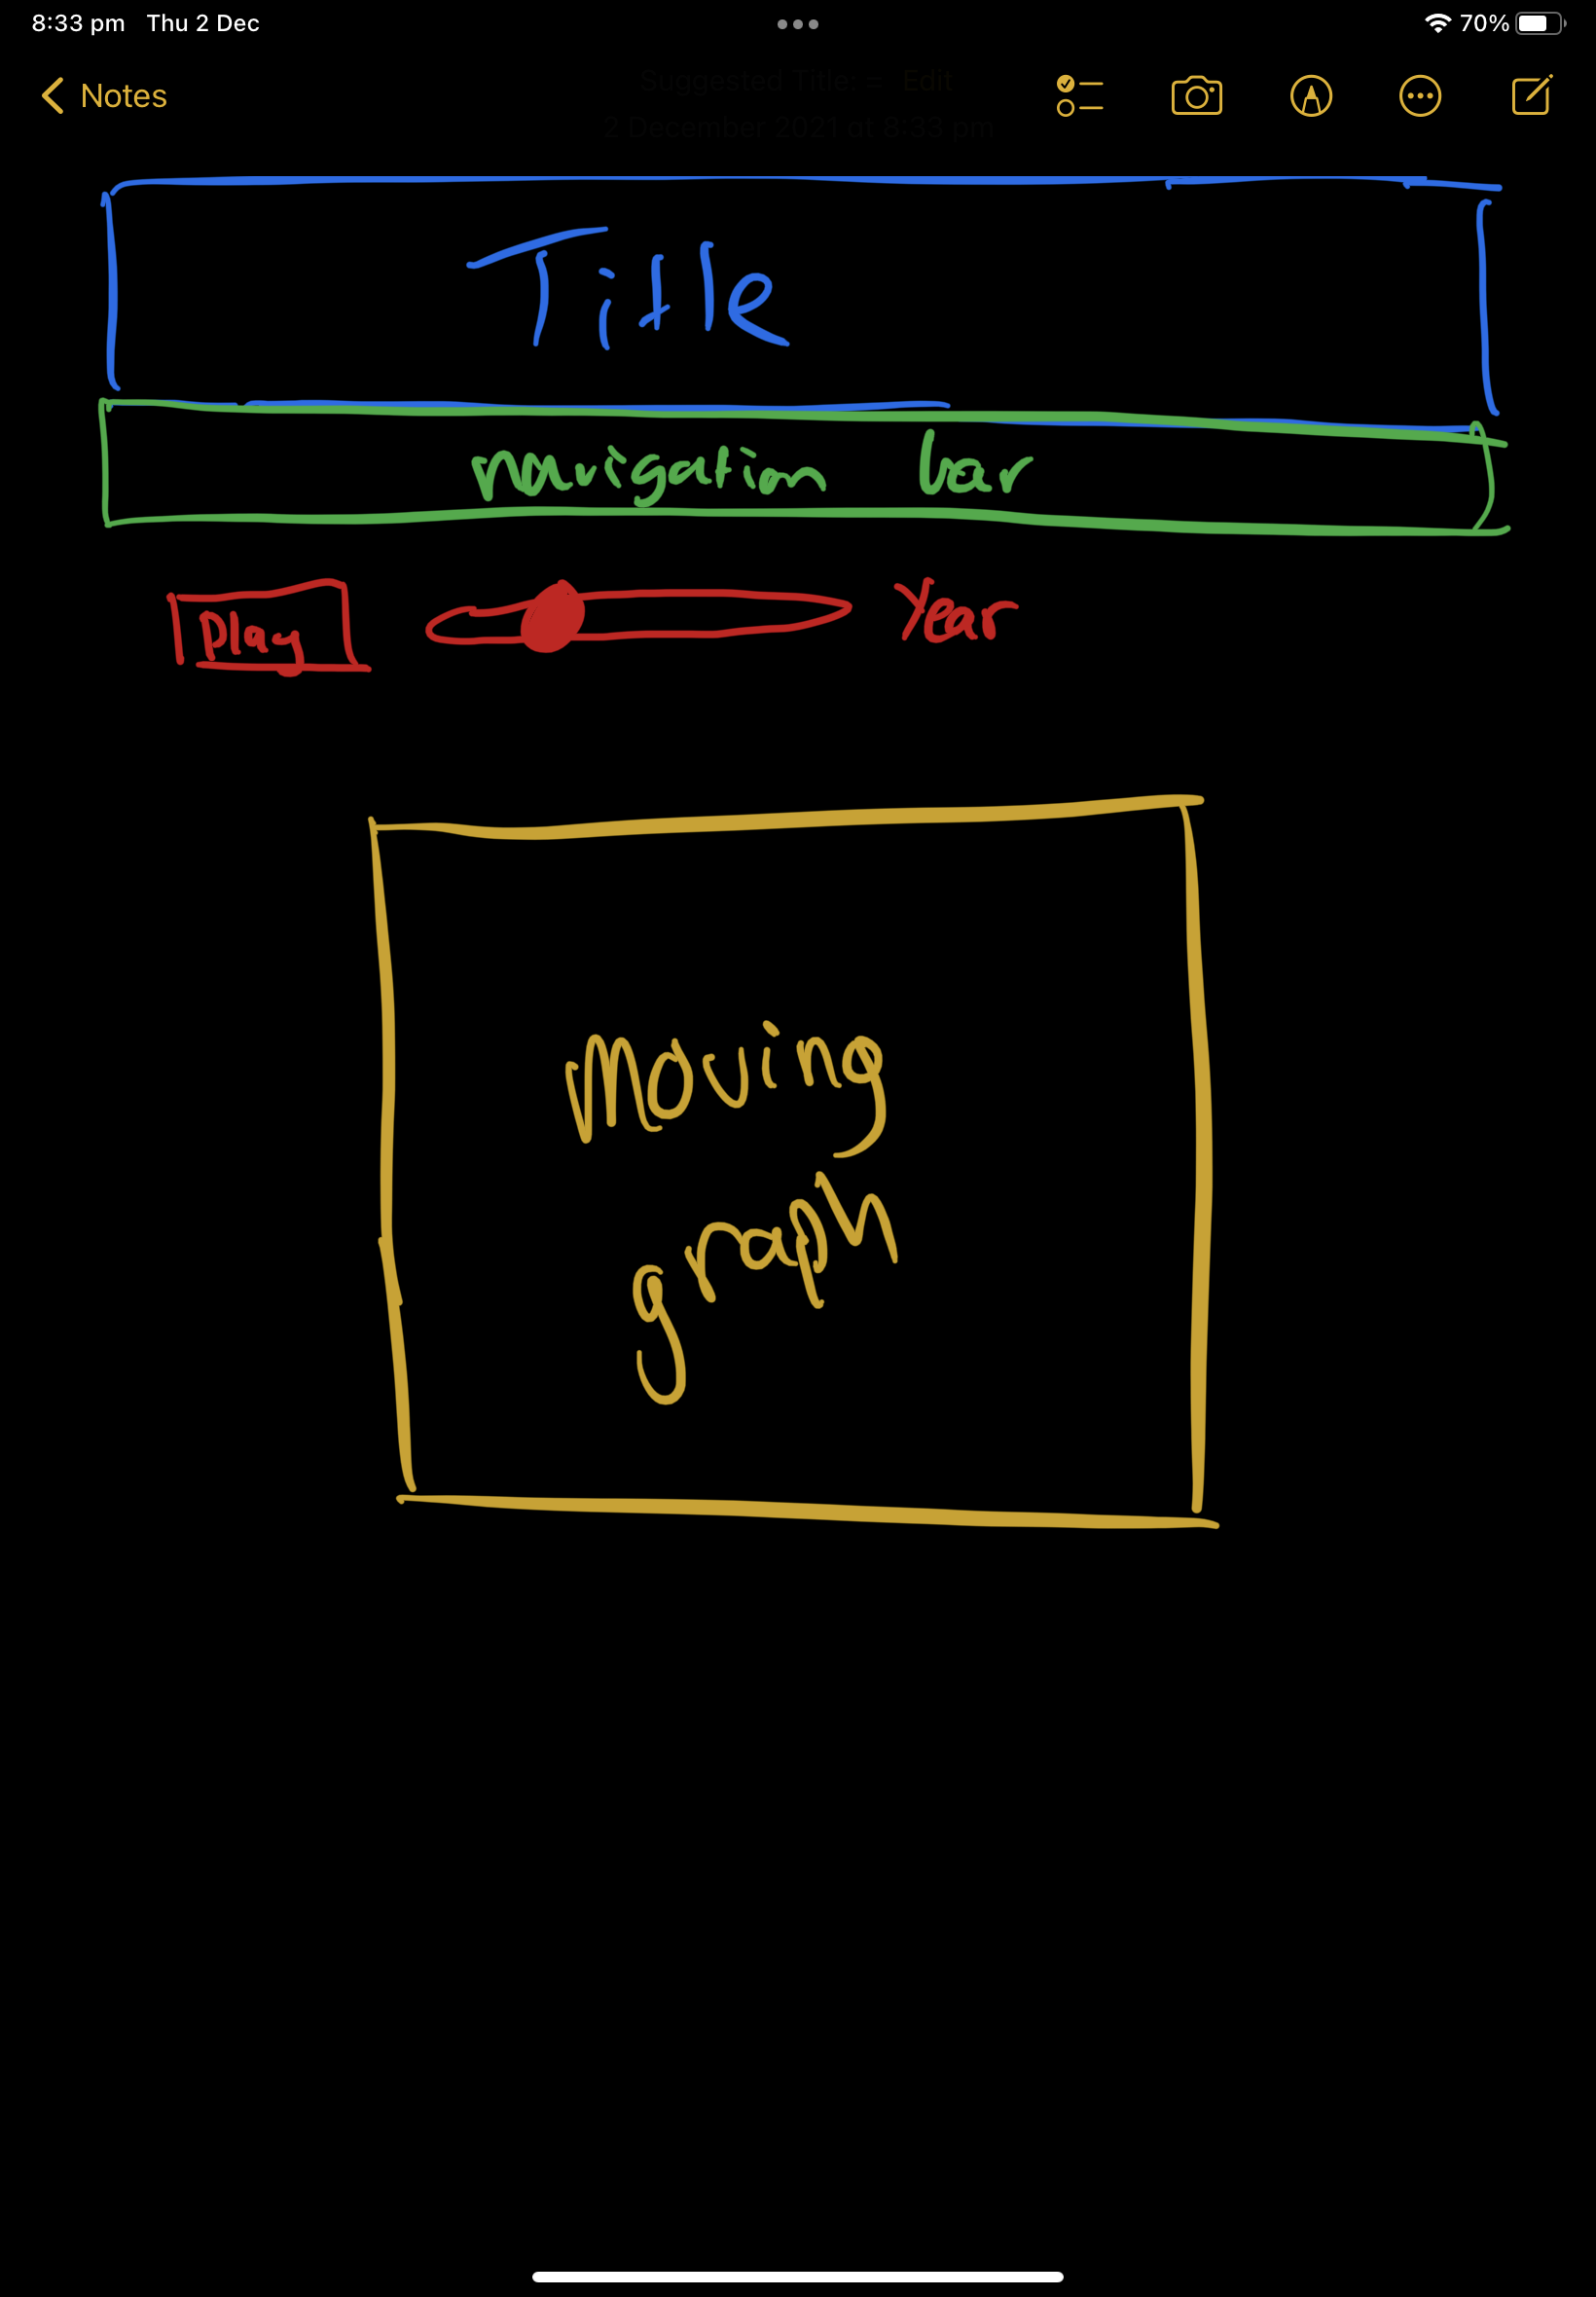 8:33 pm Thu 2 Dec
70%
Notes
Suggested Title: = Edit
2 December 2021 at 8:33 pm
Title
Navigation bar
Play
Year
Moving
graph